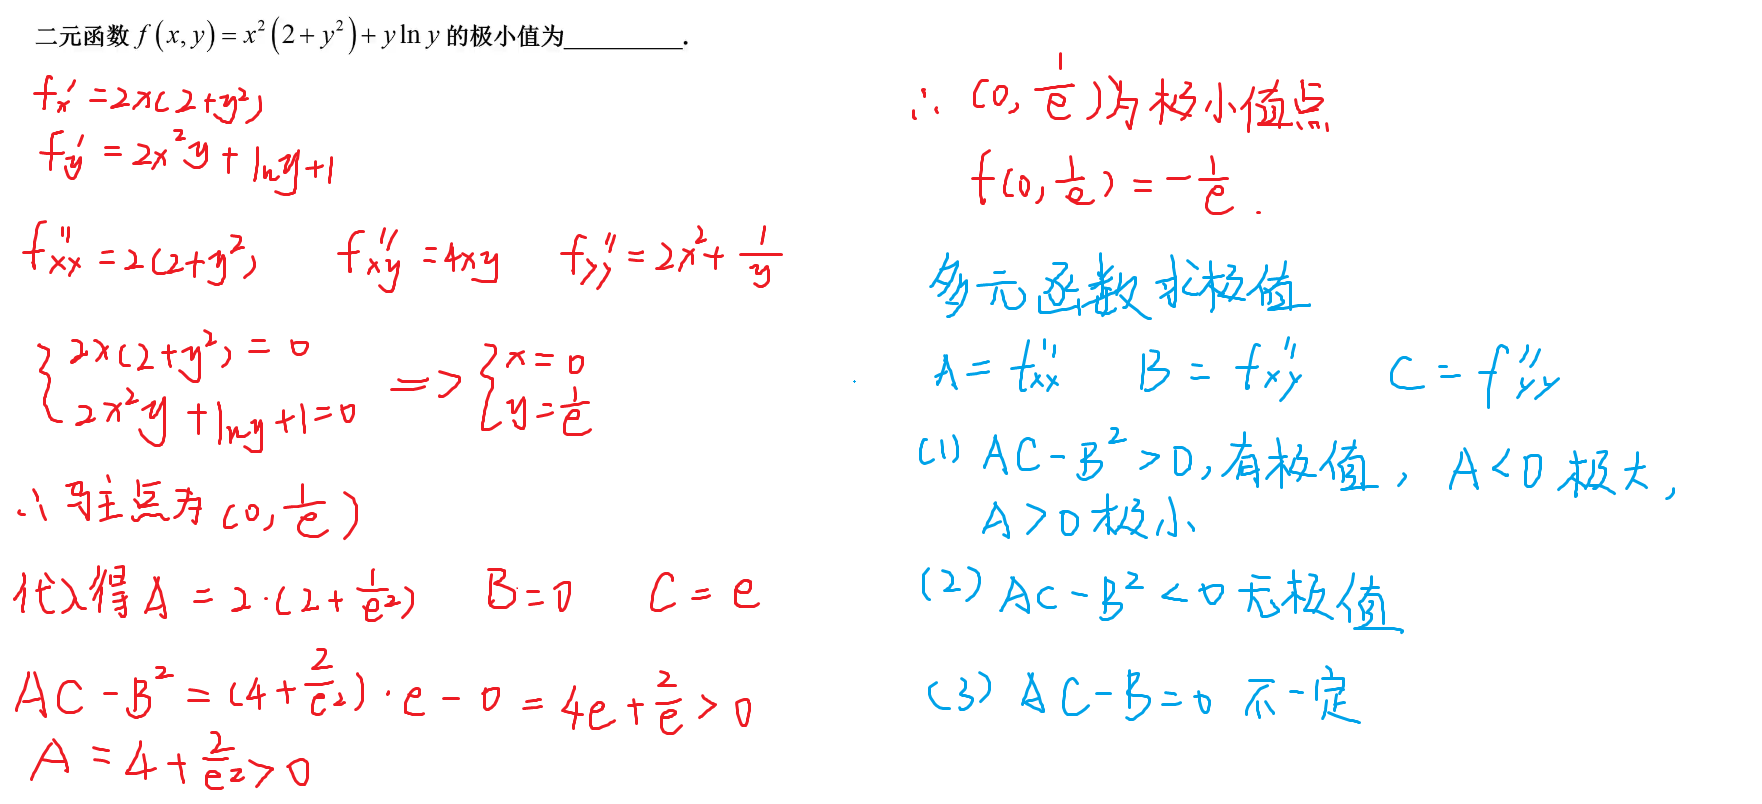 二元函数 f(x,y)=x²(2+y²)+y ln y 的极小值为__________.
fx′=2x(2+y²)
fy′=2x²y+lny+1
fxx″=2(2+y²) fxy″=4xy fyy″=2x²+1/y
{2x(2+y²)=0
2x²y+lny+1=0 => {x=0
y=1/e
∴驻点为(0,1/e)
代入得A=2·(2+1/e²) B=0 C=e
AC-B²=(4+2/e²)·e-0=4e+2/e>0
A=4+2/e²>0
∴(0,1/e)为极小值点
f(0,1/e)=-1/e.
多元函数求极值
A=fxx″ B=fxy″ C=fyy″
(1) AC-B²>0,有极值,A<0极大,
A>0极小
(2) AC-B²<0无极值
(3) AC-B=0 不一定